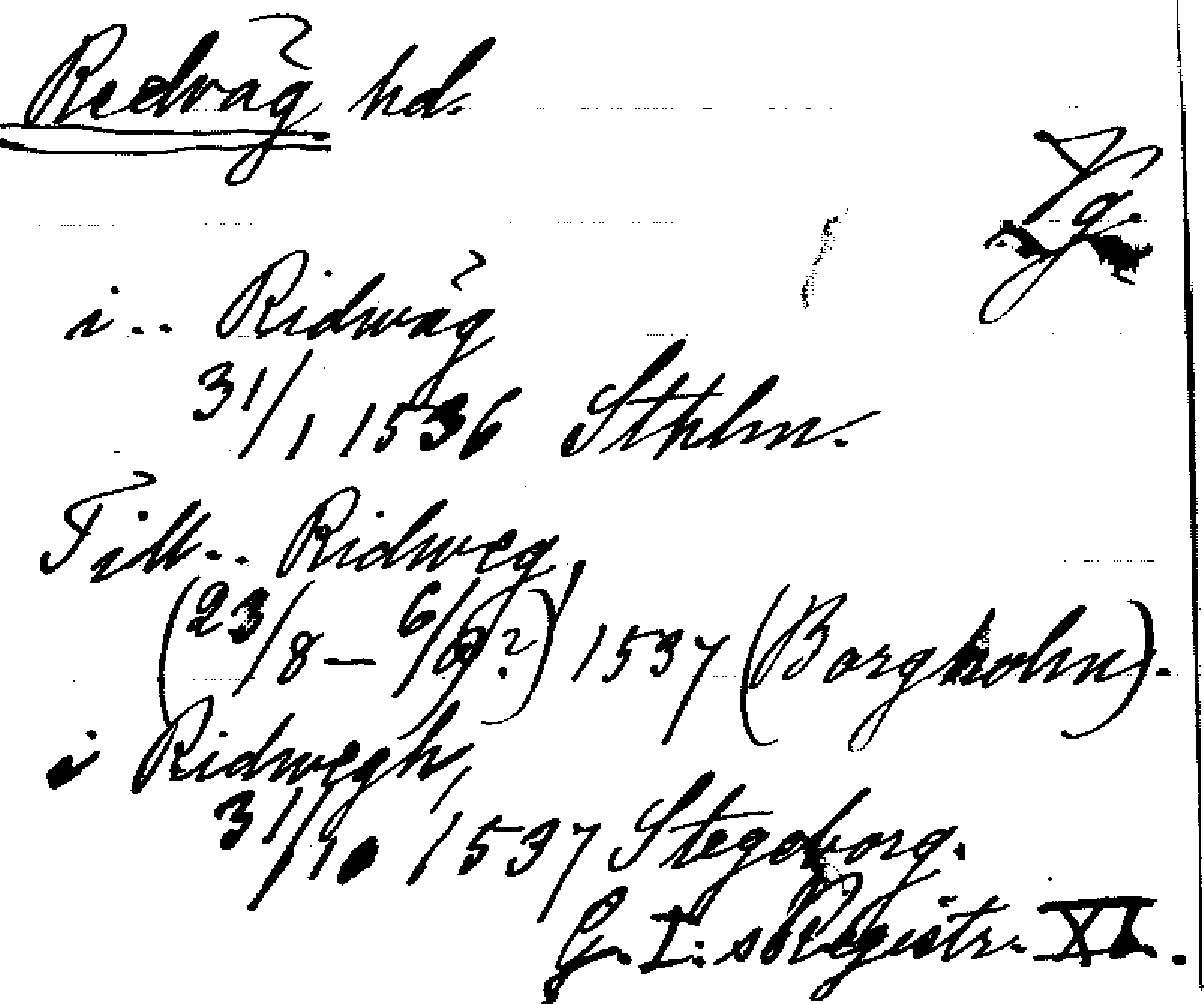 Redvåg hd.
Vg.
i.. Ridwåg
31/1 1536 Sthlm.
Till.. Ridweg,
(23/8 – 6/9?) 1537 (Borgholm).
i Ridwegh,
31/10 1537 Stegeborg.
G. I:s Registr. XI.